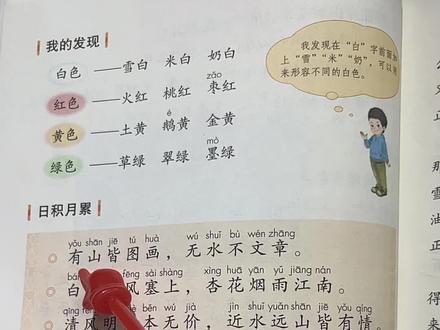 我的发现
白色——雪白 米白 奶白
zǎo
红色——火红 桃红 枣红
é
黄色——土黄 鹅黄 金黄
mò
绿色——草绿 翠绿 墨绿
我发现在“白”字前面加
上“雪”“米”“奶”，可以用
来形容不同的白色。
日积月累
yǒu shān jiē tú huà wú shuǐ bù wén zhāng
有山皆图画，无水不文章。
fēng sài shàng xìng huā yān yǔ jiāng nán
白 风塞上，杏花烟雨江南。
běn wú jià jìn shuǐ yuǎn shān jiē yǒu qíng
清风明 本无价，近水远山皆有情。
雪
油
正
得